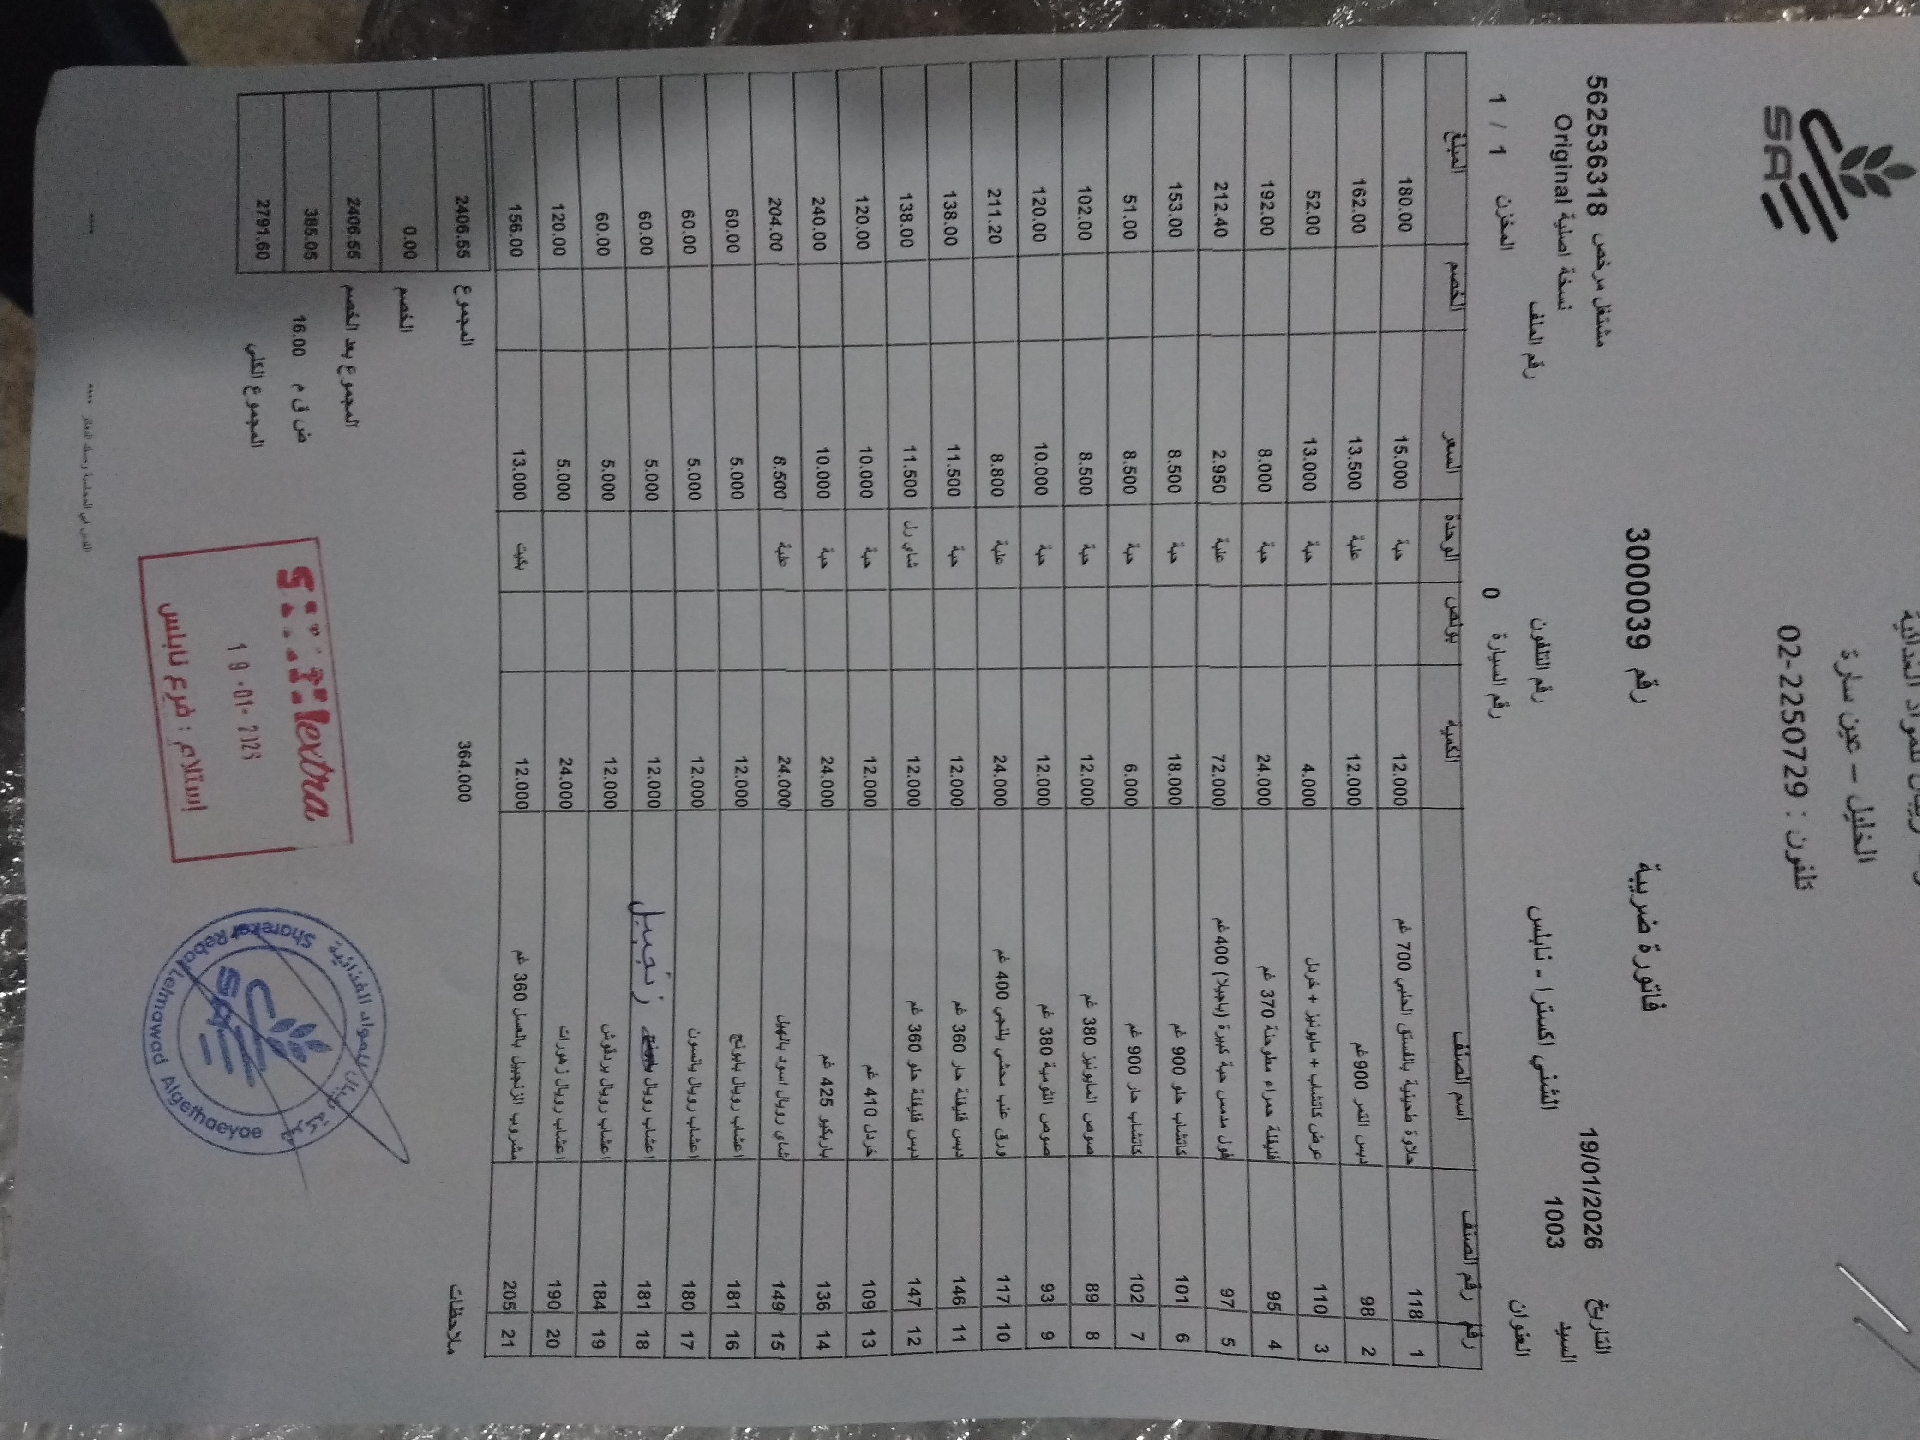 SAE
للمواد الغذائية
الخليل - عين سارة
تلفون : 02-2250729
فاتورة ضريبية رقم 3000039
مشتغل مرخص 562536318
التاريخ 19/01/2026
نسخة اصلية Original
السيد 1003 الشني اكسترا - نابلس
رقم التلفون
رقم الملف
العنوان
رقم السيارة 0
المخزن 1 / 1
رقم رقم الصنف اسم الصنف الكمية بونص الوحدة السعر الخصم المبلغ
1 118 حلاوة طحينية بالفستق الحلبي 700 غم 12.000 حبة 15.000 180.00
2 98 دبس التمر 900 غم 12.000 علبة 13.500 162.00
3 110 عرض كاتشاب + مايونيز + خردل 4.000 حبة 13.000 52.00
4 95 فليفلة حمراء مطحونة 370 غم 24.000 حبة 8.000 192.00
5 97 فول مدمس حبة كبيرة (باجيلا) 400 غم 72.000 علبة 2.950 212.40
6 101 كاتشاب حلو 900 غم 18.000 حبة 8.500 153.00
7 102 كاتشاب حار 900 غم 6.000 حبة 8.500 51.00
8 89 صوص المايونيز 380 غم 12.000 حبة 8.500 102.00
9 93 صوص الثومية 380 غم 12.000 حبة 10.000 120.00
10 117 ورق عنب محشي يلنجي 400 غم 24.000 علبة 8.800 211.20
11 146 دبس فليفلة حار 360 غم 12.000 حبة 11.500 138.00
12 147 دبس فليفلة حلو 360 غم 12.000 شاي رل 11.500 138.00
13 109 خردل 410 غم 12.000 حبة 10.000 120.00
14 136 باربكيو 425 غم 24.000 حبة 10.000 240.00
15 149 شاي رويال اسود بالهيل 24.000 علبة 8.500 204.00
16 181 اعشاب رويال بابونج 12.000 5.000 60.00
17 180 اعشاب رويال يانسون 12.000 5.000 60.00
18 181 اعشاب رويال بابونج زنجبيل 12.000 5.000 60.00
19 184 اعشاب رويال بردقوش 12.000 5.000 60.00
20 190 اعشاب رويال زهورات 24.000 5.000 120.00
21 205 مشروب الزنجبيل بالعسل 360 غم 12.000 بكيت 13.000 156.00
ملاحظات 364.000 المجموع 2406.55
الخصم 0.00
المجموع بعد الخصم 2406.55
ض ق م 16.00 385.05
المجموع الكلي 2791.60
extra
19-01-2026
إستلام : فرع نابلس
شركة ريبال للمواد الغذائية
SAE
Sharekat Rebal Lelmawad Algethaeyae